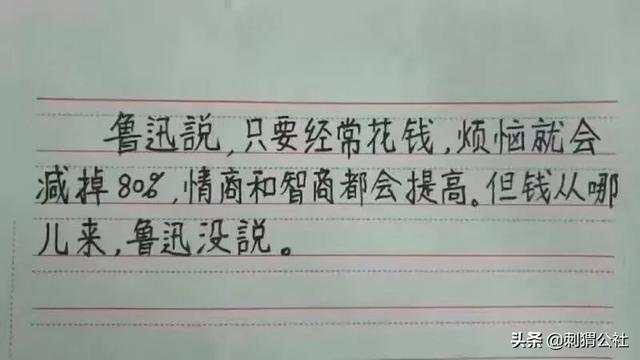 鲁迅説,只要经常花钱,烦恼就会
减掉80%,情商和智商都会提高。但钱从哪
儿来,鲁迅没説。
头条@刺猬公社